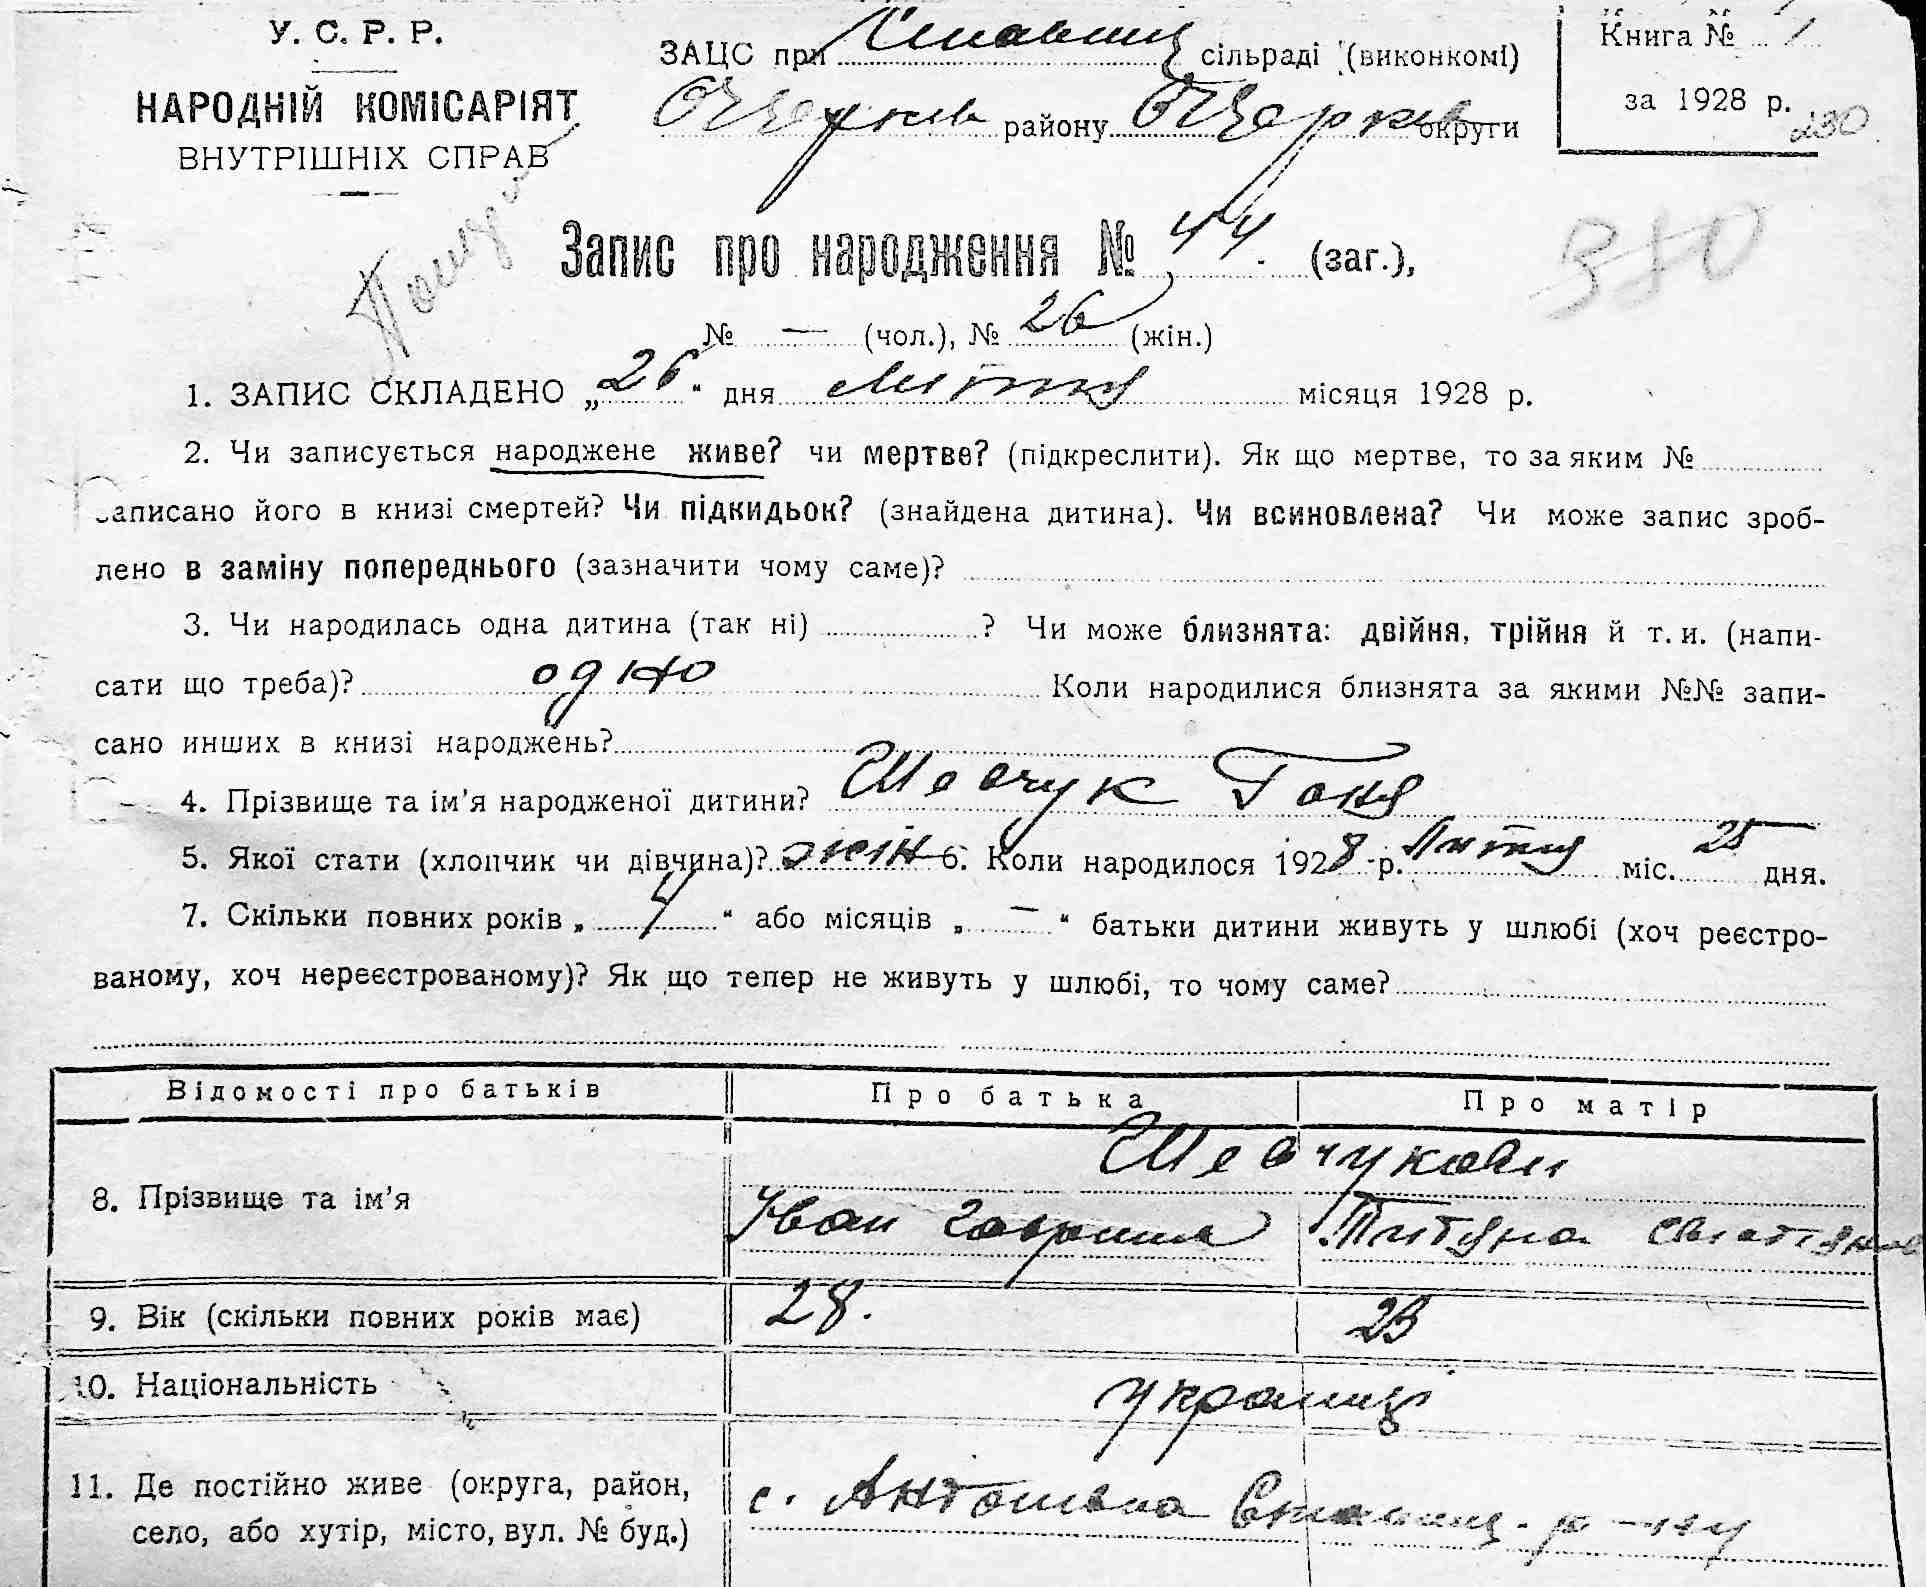 У. С. Р. Р.
НАРОДНІЙ КОМІСАРІЯТ
ВНУТРІШНІХ СПРАВ
ЗАЦС при сільраді (виконкомі)
Б Церков району Б Церков округи
Книга № 1
за 1928 р.
230
380
Запис про народження № 44. (заг.),
№ — (чол.), № 26 (жін.)
1. ЗАПИС СКЛАДЕНО „26“ дня лютня місяця 1928 р.
2. Чи записується народжене живе? чи мертве? (підкреслити). Як що мертве, то за яким №
записано його в книзі смертей? Чи підкидьок? (знайдена дитина). Чи всиновлена? Чи може запис зроб-
лено в заміну попереднього (зазначити чому саме)?
3. Чи народилась одна дитина (так ні) ? Чи може близнята: двійня, трійня й т. и. (напи-
сати що треба)? одно Коли народилися близнята за якими №№ запи-
сано инших в книзі народжень?
4. Прізвище та ім’я народженої дитини? Шевчук Ганя
5. Якої стати (хлопчик чи дівчина)? жін 6. Коли народилося 1928 р. Лютня міс. 25 дня.
7. Скільки повних років „ 4 “ або місяців „ — “ батьки дитини живуть у шлюбі (хоч реєстро-
ваному, хоч нереєстрованому)? Як що тепер не живуть у шлюбі, то чому саме?
Відомості про батьків Про батька Про матір
8. Прізвище та ім’я Шевчукови
Іван Гаврил
9. Вік (скільки повних років має) 28. 23
10. Національність україн
11. Де постійно живе (округа, район,
село, або хутір, місто, вул. № буд.)
с. Антонівка р-ну